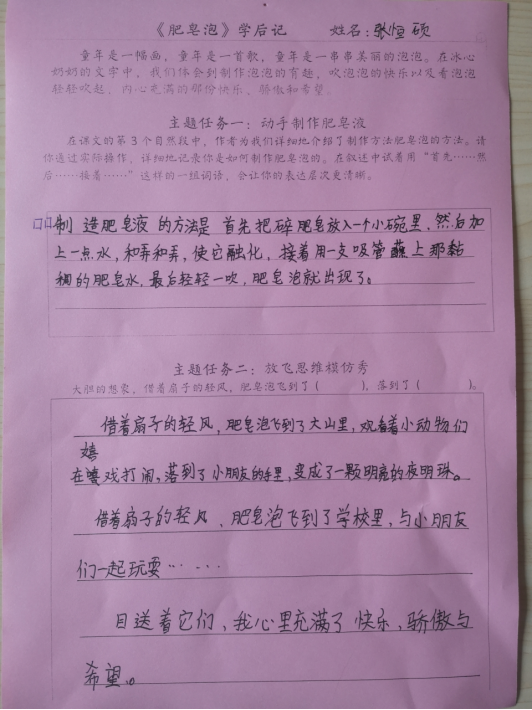 《肥皂泡》学后记 姓名:张恒硕
童年是一幅画，童年是一首歌，童年是一串串美丽的泡泡。在冰心
奶奶的文字中，我们体会到制作泡泡的有趣，吹泡泡的快乐以及看泡泡
轻轻吹起，内心充满的那份快乐，骄傲和希望。
主题任务一：动手制作肥皂液
在课文的第3个自然段中，作者为我们详细地介绍了制作方法肥皂泡的方法。请
你通过实际操作，详细地记录你是如何制作肥皂泡的。在叙述中试着用“首先……然
后……接着……”这样的一组词语，会让你的表达层次更清晰。
制造肥皂液的方法是首先把碎肥皂放入一个小碗里，然后加
上一点水，和弄和弄，使它融化，接着用一支吸管蘸上那黏
稠的肥皂水，最后轻轻一吹，肥皂泡就出现了。
主题任务二：放飞思维模仿秀
大胆的想象，借着扇子的轻风，肥皂泡飞到了（ ），落到了（ ）。
借着扇子的轻风，肥皂泡飞到了大山里，观看着小动物们
嬉
在嘻戏打闹，落到了小朋友的手里，变成了一颗明亮的夜明珠。
借着扇子的轻风、肥皂泡飞到了学校里，与小朋友
们一起玩耍……
目送着它们，我心里充满了快乐，骄傲与
希望。